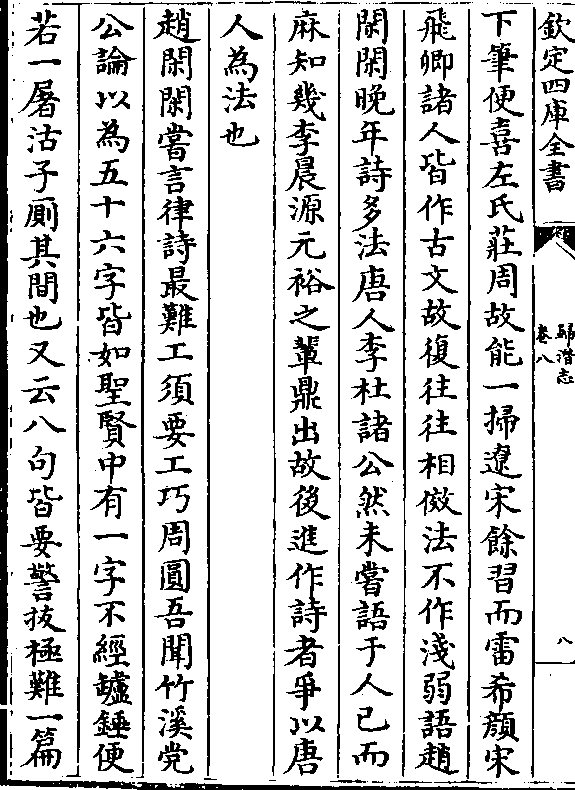 欽定四庫全書
歸潛志
卷八
八
下筆便喜左氏莊周故能一掃遼宋餘習而雷希顔宋
飛卿諸人皆作古文故復往往相倣法不作淺弱語趙
閑閑晚年詩多法唐人李杜諸公然未嘗語于人已而
麻知幾李長源元裕之輩鼎出故後進作詩者爭以唐
人為法也
趙閑閑嘗言律詩最難工須要工巧周圓吾聞竹溪党
公論以為五十六字皆如聖賢中有一字不經鑪錘便
若一屠沽子厠其間也又云八句皆要警拔極難一篇